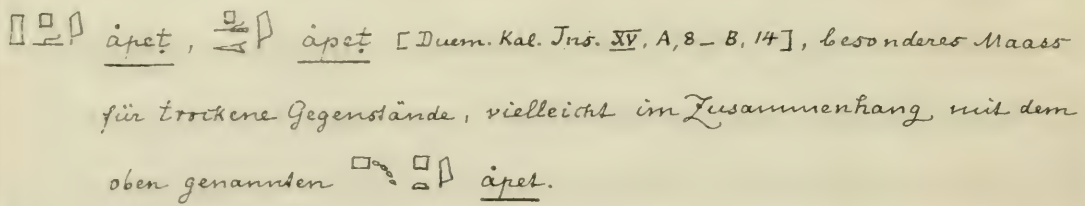 ȧpeṭ, ȧpeṭ [Duem. Kal. Ins. XV, A, 8 – B, 14], besonderes Maass
für trockene Gegenstände, vielleicht im Zusammenhang mit dem
oben genannten ȧpet.